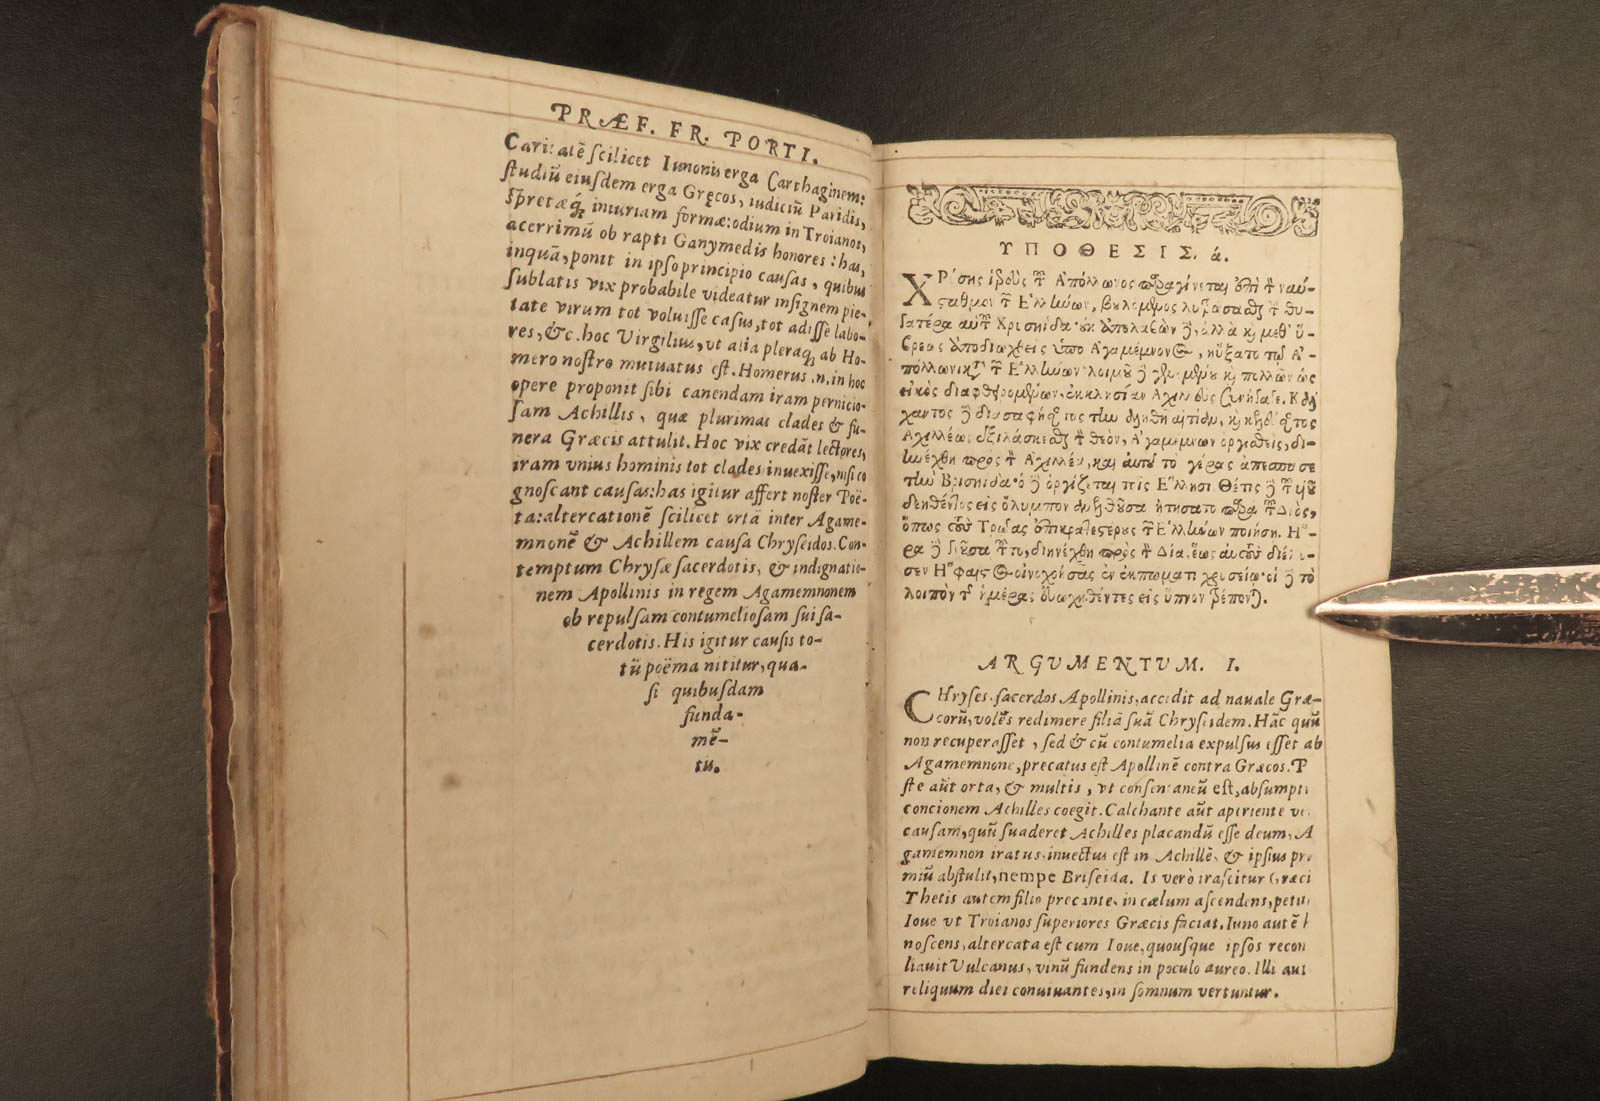 PRÆF. FR. PORTI.
Caritatē scilicet Iunonis erga Carthaginem:
studiū eiusdem erga Gręcos, iudiciū Paridis,
spretæq́; iniuriam formæ: odium in Troianos,
acerrimū ob rapti Ganymedis honores: has,
inquā, ponit in ipso principio causas, quibus
sublatis vix probabile videatur insignem pie-
tate virum tot voluisse casus, tot adisse labo-
res, &c. hoc Virgilius, vt alia pleraq; ab Ho-
mero nostro mutuatus est. Homerus .n. in hoc
opere proponit sibi canendam iram pernicio-
sam Achillis, quæ plurimas clades & fu-
nera Græcis attulit. Hoc vix credāt lectores,
iram vnius hominis tot clades inuexisse, nisi co
gnoscant causas: has igitur affert noster Poë-
ta: altercationē scilicet ortā inter Agame-
mnonē & Achillem causa Chryseidos. Con-
temptum Chrysæ sacerdotis, & indignatio-
nem Apollinis in regem Agamemnonem
ob repulsam contumeliosam sui sa-
cerdotis. His igitur causis to-
tū poëma nititur, qua-
si quibusdam
funda-
mē-
tis.
ΥΠΟΘΕΣΙΣ. ά.
ΧΡύσης ἱερεὺς τοῦ Ἀπόλλωνος παραγίνεται ἐπὶ τὸν ναύ-
σταθμον τῶν Ἑλλήνων, βουλόμενος λυτρώσασθαι τὴν θυ-
γατέρα αὐτοῦ Χρυσηίδα· οὐκ ἀπολαβὼν δὲ, ἀλλὰ καὶ μεθ' ὕ-
βρεως ἀποδιωχθεὶς ὑπὸ Ἀγαμέμνονος, ηὔξατο τῷ Ἀ-
πόλλωνι κατὰ τῶν Ἑλλήνων· λοιμοῦ δὲ γενομένου καὶ πολλῶν ὡς
εἰκὸς διαφθειρομένων, ἐκκλησίαν Ἀχιλλεὺς συνήγαγε. Κάλ
χαντος δὲ
Ἀχιλλέως ἐξιλάσκεσθαι τὸν θεὸν, Ἀγαμέμνων ὀργισθεὶς, δι-
ηνέχθη πρὸς τὸν Ἀχιλλέα, καὶ αὐτοῦ τὸ γέρας ἀπέσπασε
τὴν Βρισηίδα· ὁ δὲ ὀργίζεται τοῖς Ἕλλησι. Θέτις δὲ τοῦ υἱοῦ
δεηθέντος εἰς ὄλυμπον ἀνελθοῦσα ᾐτήσατο παρὰ τοῦ Διὸς,
ὅπως τοὺς Τρῶας ἐπικρατεστέρους τῶν Ἑλλήνων ποιήσῃ. Ἥ-
ρα δὲ διηνέχθη πρὸς τὸν Δία, ἕως αὐτοὺς
σεν Ἥφαιστος οἰνοχοήσας ἐν ἐκπώματι χρυσείῳ· οἱ δὲ τὸ
λοιπὸν τῆς ἡμέρας εὐωχηθέντες εἰς ὕπνον τρέπονται.
ARGUMENTUM. I.
CHryses. sacerdos Apollinis, accedit ad nauale Græ-
corū, volēs redimere filiā suā Chryseidem. Hāc quū
non recuperasset, sed & cū contumelia expulsus esset ab
Agamemnone, precatus est Apollinē contra Græcos. P
ste aūt orta, & multis, vt consentaneū est, absumpti
concionem Achilles coegit. Calchante aūt aperiente ve
causam, quū suaderet Achilles placandū esse deum, A
gamemnon iratus inuectus est in Achillē, & ipsius præ
miū abstulit, nempe Briseida. Is verò irascitur Græci
Thetis autem filio precante, in cælum ascendens, petiit
Ioue vt Troianos superiores Græcis faciat. Iuno autē
noscens, altercata est cum Ioue, quousque ipsos recon
liauit Vulcanus, vinū fundens in poculo aureo. Illi aut
reliquum diei conuiuantes, in somnum vertuntur.